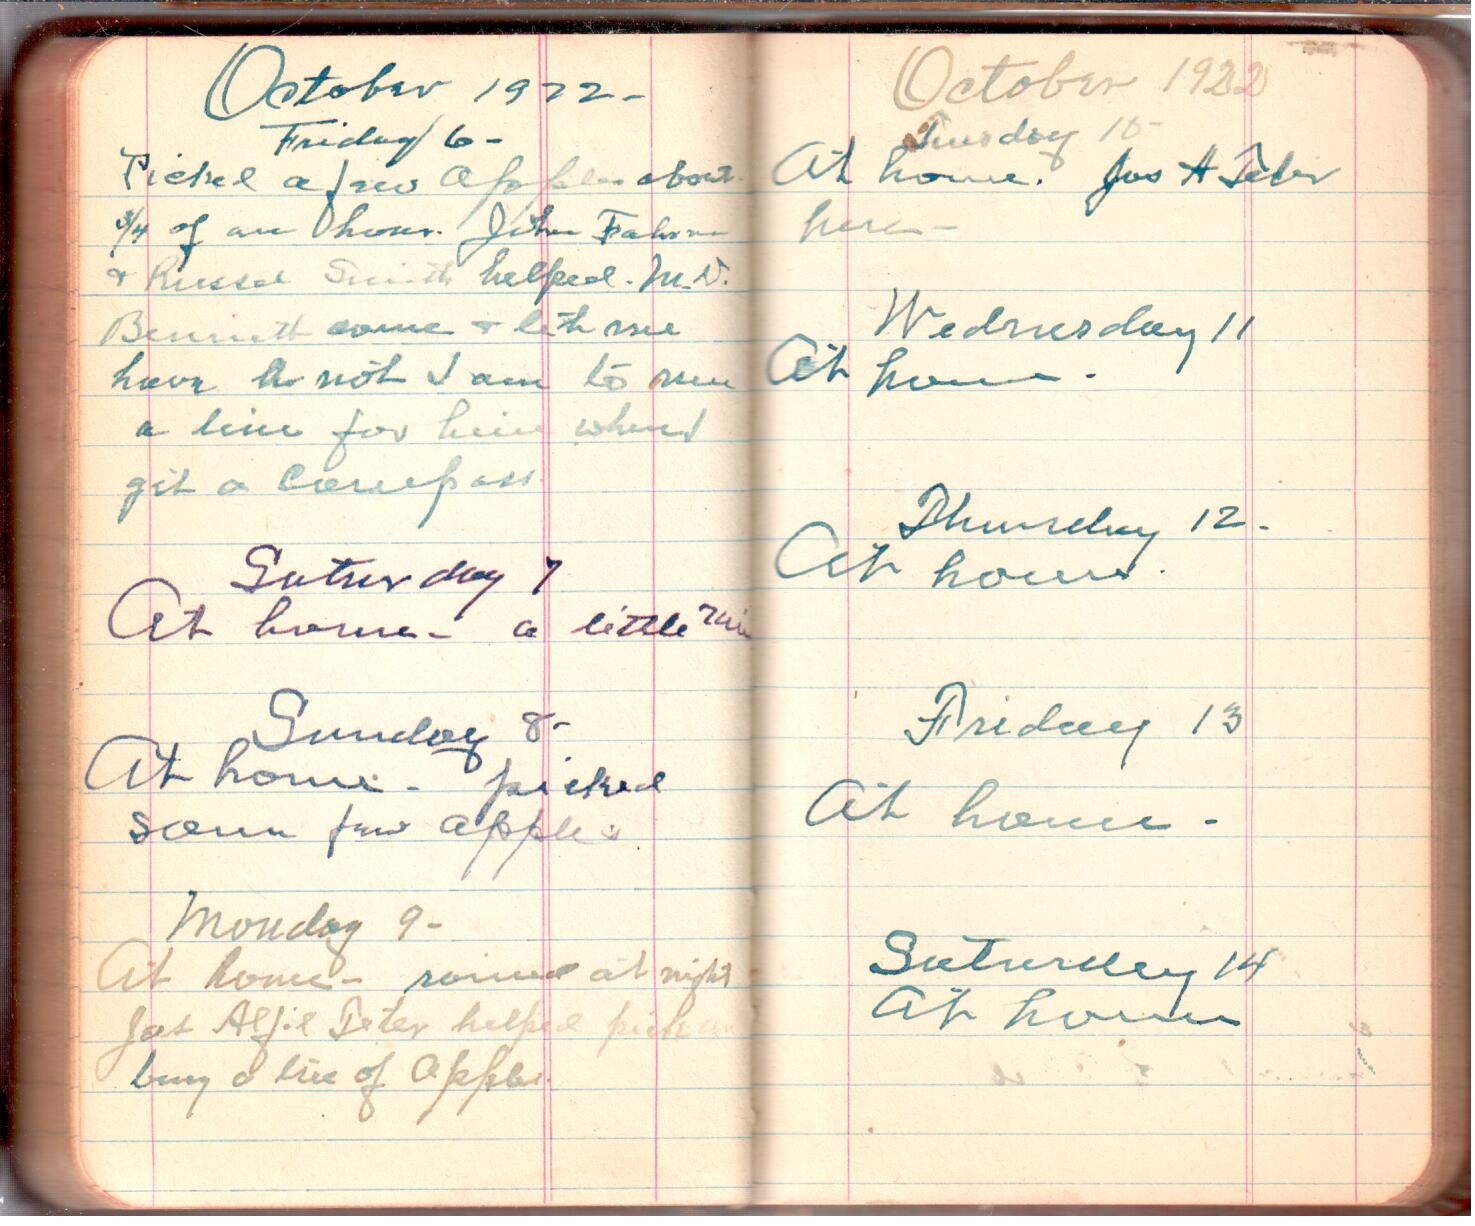 October 1922-
Friday 6-
Picked a few Apples about
3/4 of an hour. John Fahrn
& Russel Smith helped. M.V.
Bennett come & let me
have his not I am to run
a line for him when I
git a Compass.
Saturday 7
At home - a little rain
Sunday 8-
At home - picked
some few apples
Monday 9-
At home - rained at night
Jas Teter helped pick
bury a tree of Apples.
October 1922
Tuesday 10-
At home. Jos A Teter
here-
Wednesday 11
At home -
Thursday 12-
At home.
Friday 13
At home -
Saturday 14
At home